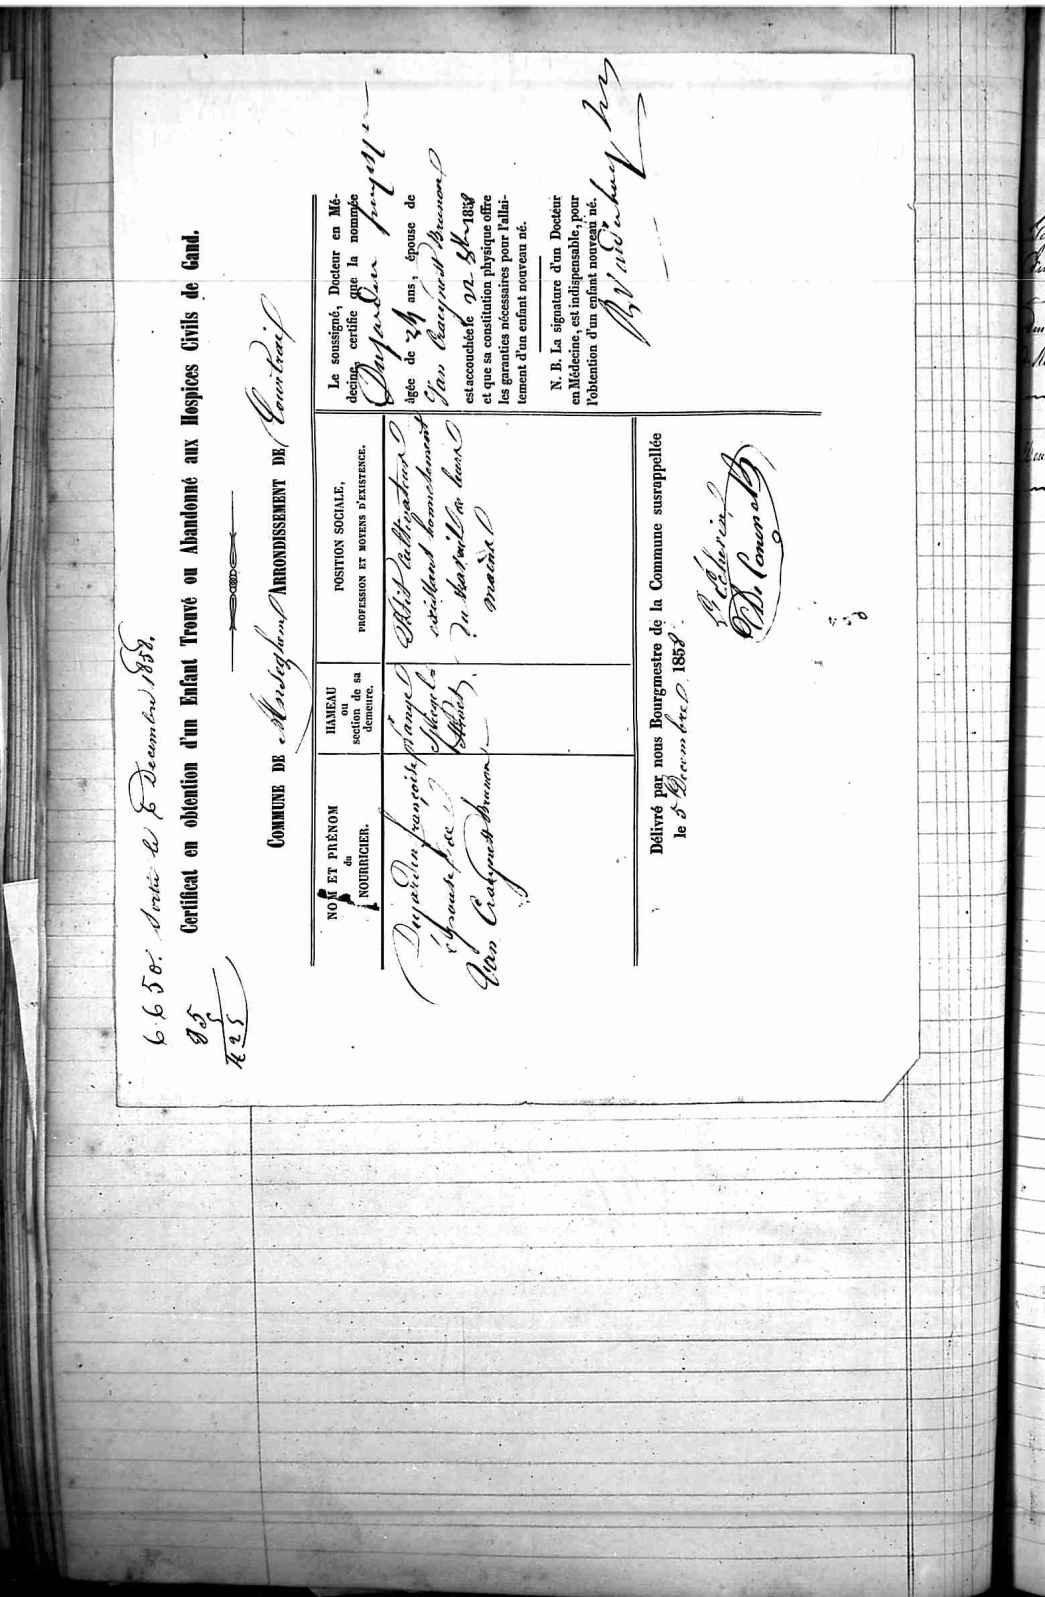 6650. Sortie le 7 Decembre 1858.
85
5
425
Certificat en obtention d'un Enfant Trouvé ou Abandonné aux Hospices Civils de Gand.
COMMUNE DE Anseghem ARRONDISSEMENT DE Courtrai
NOM ET PRÉNOM
du
NOURRICIER.
Dujardin françoise
épouse de
Van Craeynest Brunon
HAMEAU
ou
section de sa
demeure.
POSITION SOCIALE,
PROFESSION ET MOYENS D'EXISTENCE.
Petit Cultivateur
existant honnetement
du travail de leurs
mains
Le soussigné, Docteur en Mé-
decine, certifie que la nommée
Dujardin
âgée de 24 ans, épouse de
Van Craeynest Brunon
est accouchée le 22 8bre 1858
et que sa constitution physique offre
les garanties nécessaires pour l'allai-
tement d'un enfant nouveau né.
N. B. La signature d'un Docteur
en Médecine, est indispensable, pour
l'obtention d'un enfant nouveau né.
Délivré par nous Bourgmestre de la Commune susrappellée
le 5 Decembre 1858.
L'Echevin